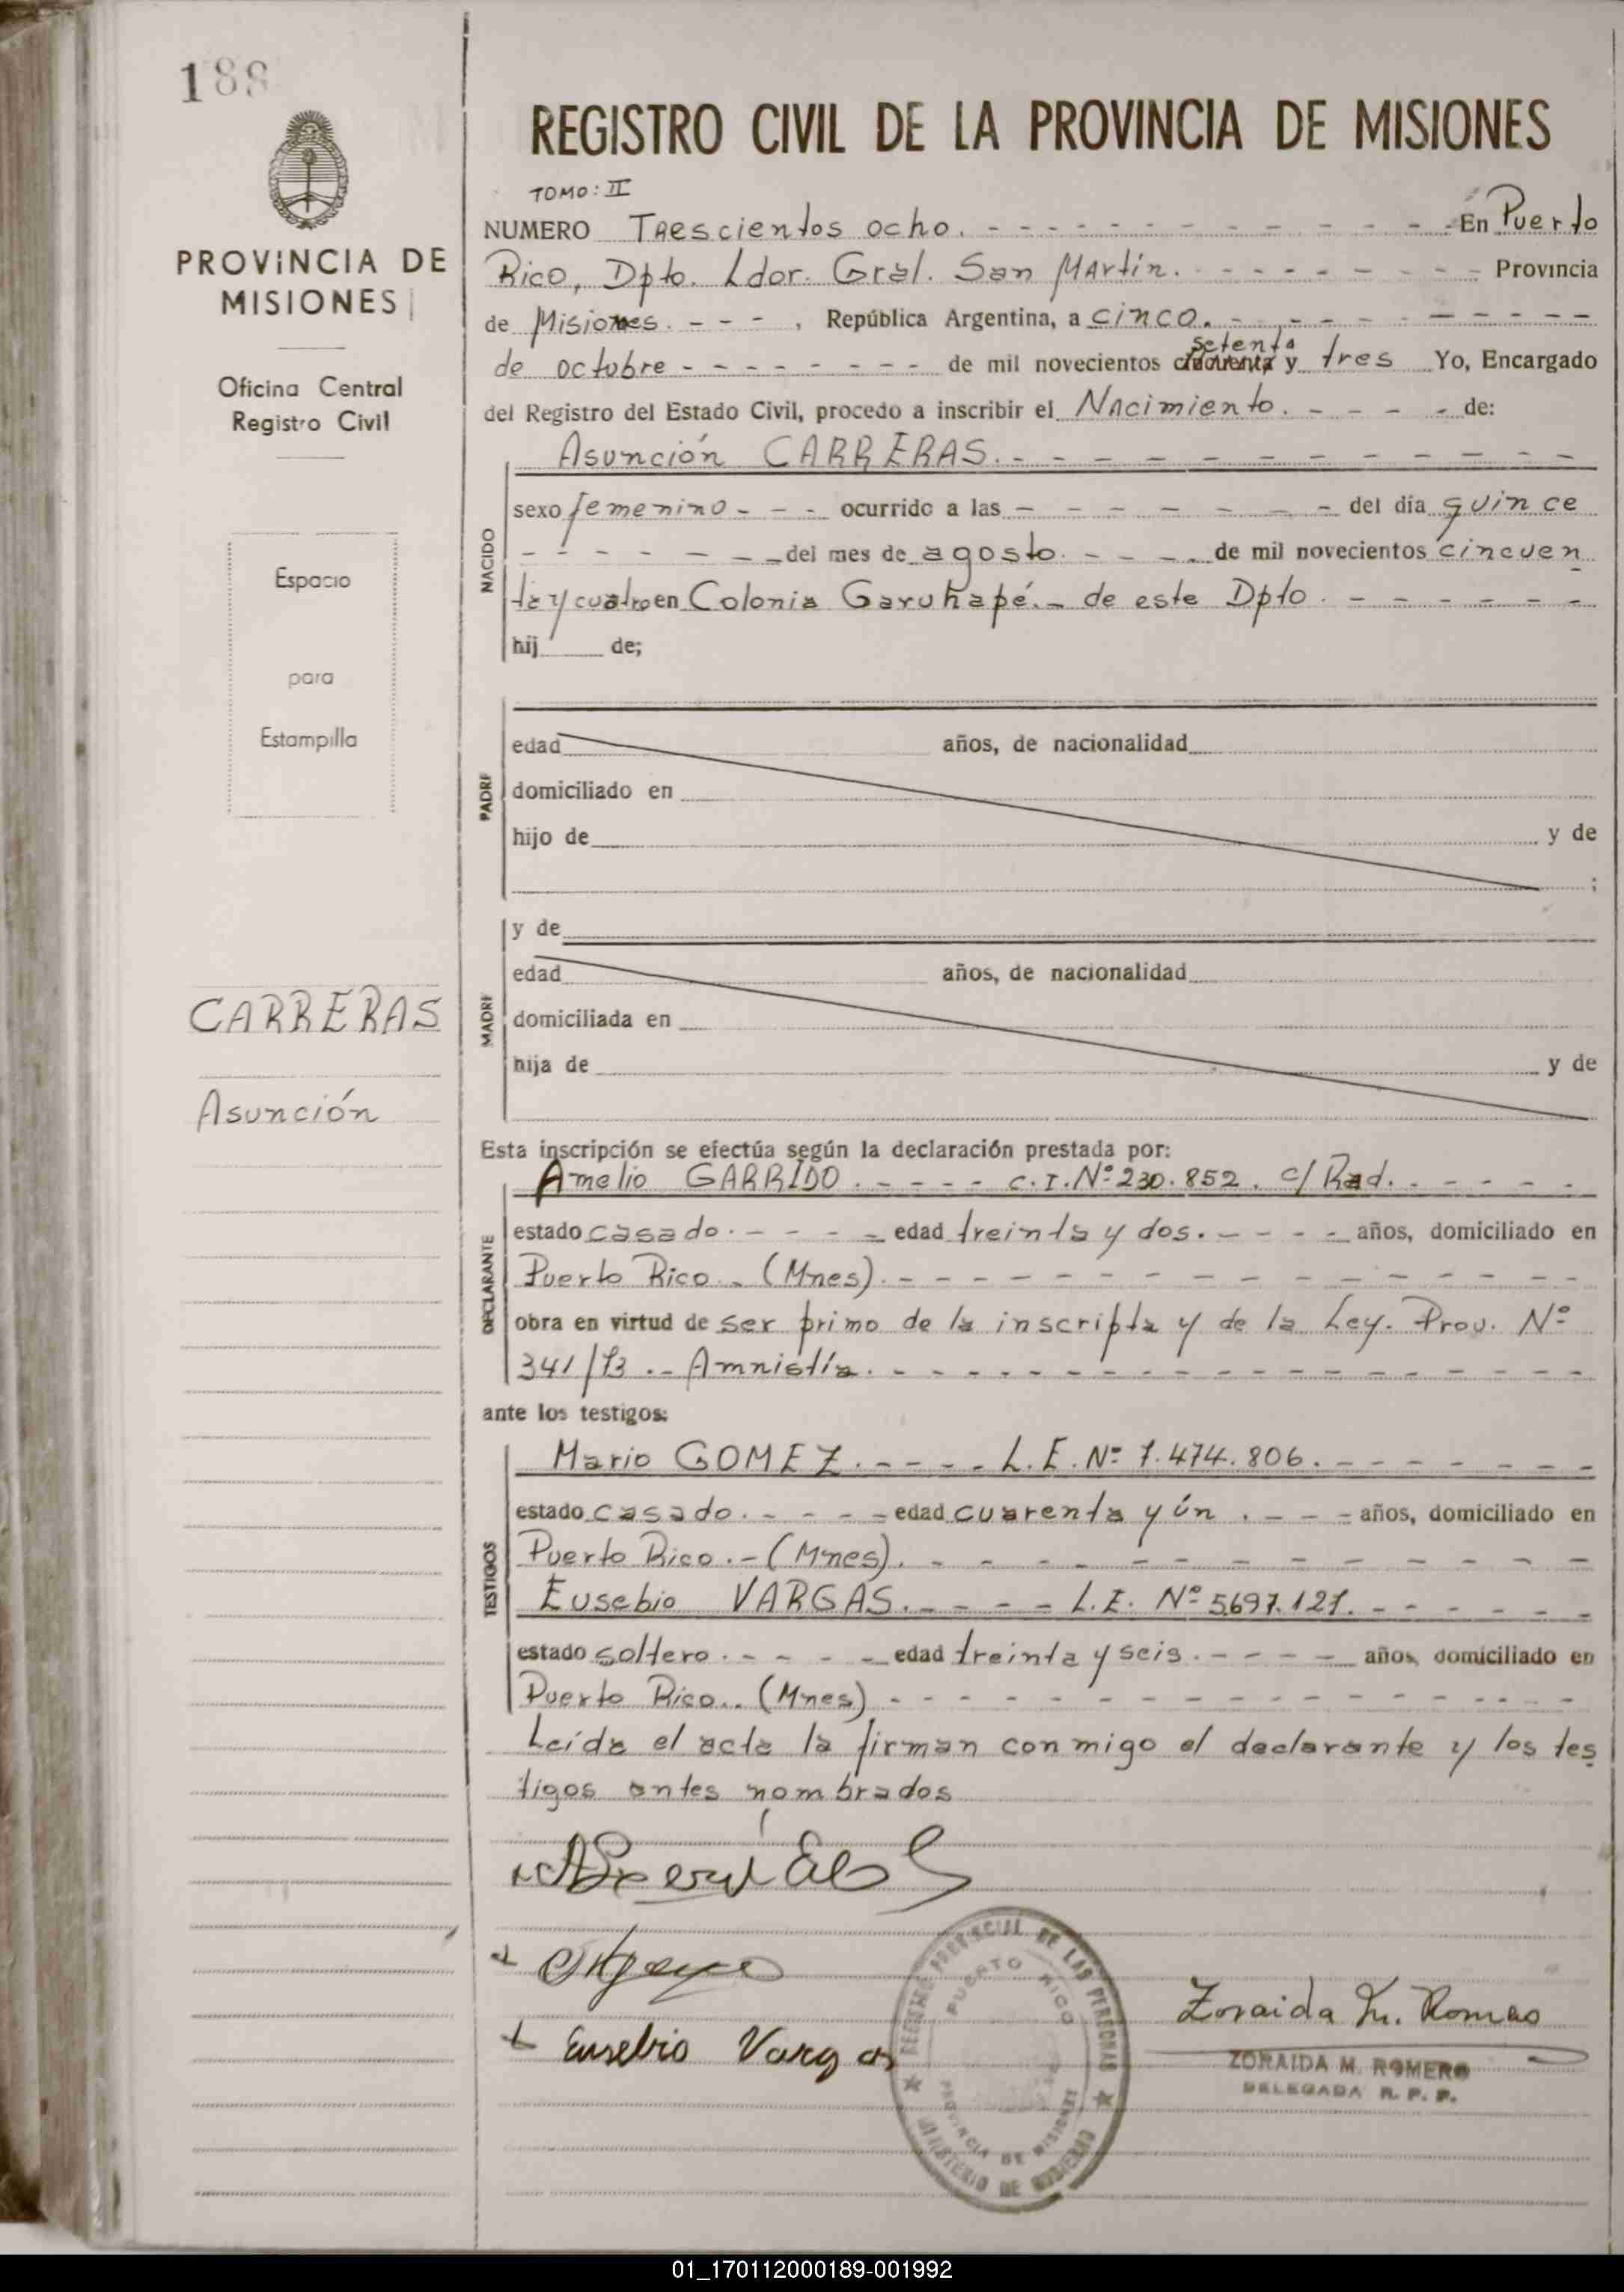 188
PROVINCIA DE
MISIONES
Oficina Central
Registro Civil
Espacio
para
Estampilla
CARRERAS
Asunción
REGISTRO CIVIL DE LA PROVINCIA DE MISIONES
TOMO: II
NUMERO Trescientos ocho. En Puerto
Rico, Dpto. Ldor. Gral. San Martín. Provincia
de Misiones. - - - , República Argentina, a cinco.
setenta
de octubre - - - de mil novecientos cincuenta y tres Yo, Encargado
del Registro del Estado Civil, procedo a inscribir el Nacimiento. - - - de:
Asunción CARRERAS.
NACIDO
sexo femenino - - - ocurrido a las - - - del día quince
- - - del mes de agosto. - - - de mil novecientos cincuen
ta y cuatro en Colonia Garuhapé.- de este Dpto.
hij de;
PADRE
edad años, de nacionalidad
domiciliado en
hijo de y de
;
MADRE
y de
edad años, de nacionalidad
domiciliada en
hija de y de
Esta inscripción se efectúa según la declaración prestada por:
DECLARANTE
Amelio GARRIDO. - - - - C.I. Nº 230.852. c/ Rad.
estado casado. - - - edad treinta y dos. - - - años, domiciliado en
Puerto Rico.- (Mnes).
obra en virtud de ser primo de la inscripta y de la Ley. Prov. Nº
341/73.- Amnistía.
ante los testigos:
TESTIGOS
Mario GOMEZ. - - - - L.E. Nº 7.474.806.
estado casado. - - - edad cuarenta y ún. - - - años, domiciliado en
Puerto Rico.- (Mnes).
Eusebio VARGAS. - - - L.E. Nº 5697.127.
estado soltero. - - - edad treinta y seis. - - - años, domiciliado en
Puerto Rico.. (Mnes)
Leída el acta la firman conmigo el declarante y los tes
tigos antes nombrados
Eusebio Vargas
REGISTRO PROVINCIAL DE LAS PERSONAS
PUERTO RICO
PROVINCIA DE MISIONES
MINISTERIO DE GOBIERNO
Zoraida M. Romero
ZORAIDA M. ROMERO
DELEGADA R. P. P.
01_170112000189-001992